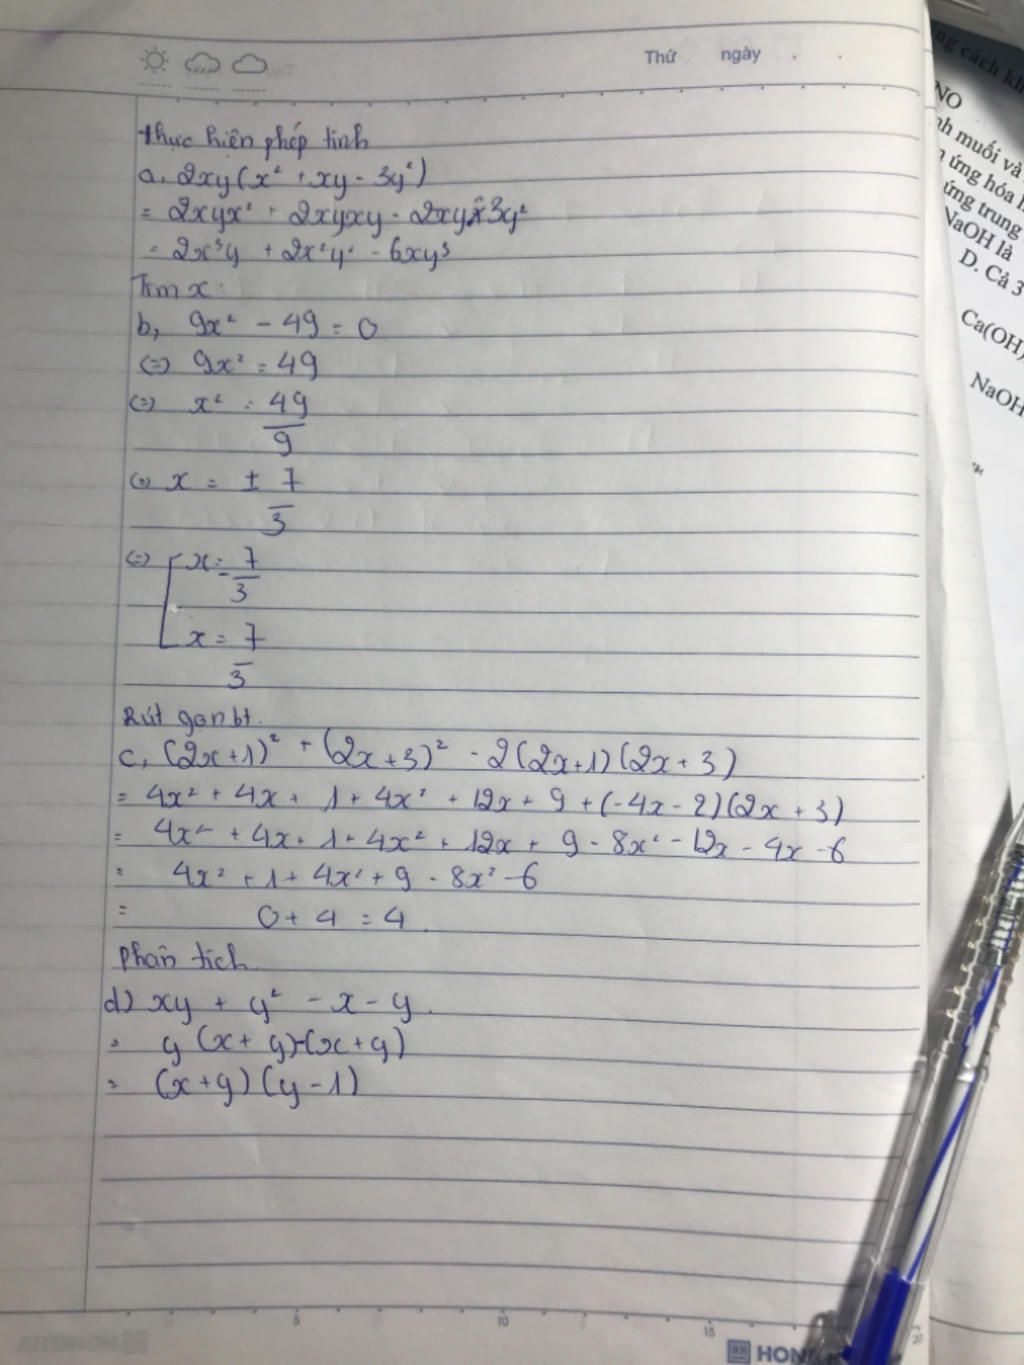 Thứ ngày . .
thực hiện phép tính
a, 2xy(x² + xy - 3y²)
= 2xyx² + 2xyxy - 2xy 3y²
= 2x³y + 2x²y² - 6xy³
Tìm x:
b, 9x² - 49 = 0
(=) 9x² = 49
(=) x² = 49/9
(=) x = ± 7/3
(=) [ x = -7/3
x = 7/3
Rút gọn bt.
c, (2x+1)² + (2x+3)² - 2(2x+1)(2x+3)
= 4x² + 4x + 1 + 4x² + 12x + 9 + (-4x - 2)(2x + 3)
= 4x² + 4x + 1 + 4x² + 12x + 9 - 8x² - 12x - 4x - 6
= 4x² + 1 + 4x² + 9 - 8x² - 6
= 0 + 4 = 4.
Phân tích
d) xy + y² - x - y.
= y (x + y)-(x+y)
= (x+y)(y-1)
5 10 15 20
HH HON
ng cách kh
NO
nh muối và
ứng hóa
ứng trung
NaOH là
D. Cả 3
Ca(OH)
NaOH